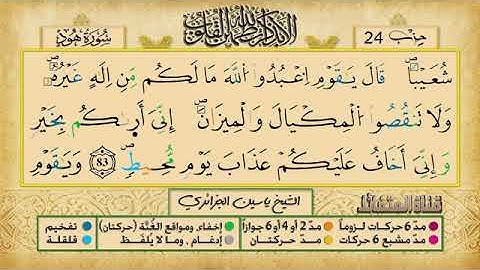 حزب 24
ألا بذكر الله تطمئن القلوب
سُورَة هُود
شُعَيْباً قَالَ يَـٰقَوْمِ اِعْبُدُوا اللَّهَ مَا لَكُم مِّنِ اِلَـٰهٍ غَيْرُهُۥ
وَلَا تَنقُصُوا الْمِكْيَالَ وَالْمِيزَانَ إِنِّىَ أَر۪يٰكُم بِخَيْرٍ
وَإِنِّىَ أَخَافُ عَلَيْكُمْ عَذَابَ يَوْمٍ مُّحِيطٍ 83 وَيَـٰقَوْمِ
الشيخ ياسين الجزائري
مدّ 6 حركات لزوماً مدّ 2 أو 4 أو 6 جوازاً إخفاء، ومواقع الغُنَّة (حركتان) تفخيم
مدّ مشبع 6 حركات مدّ حركتان إدغام، وما لا يُلفَظ قلقلة